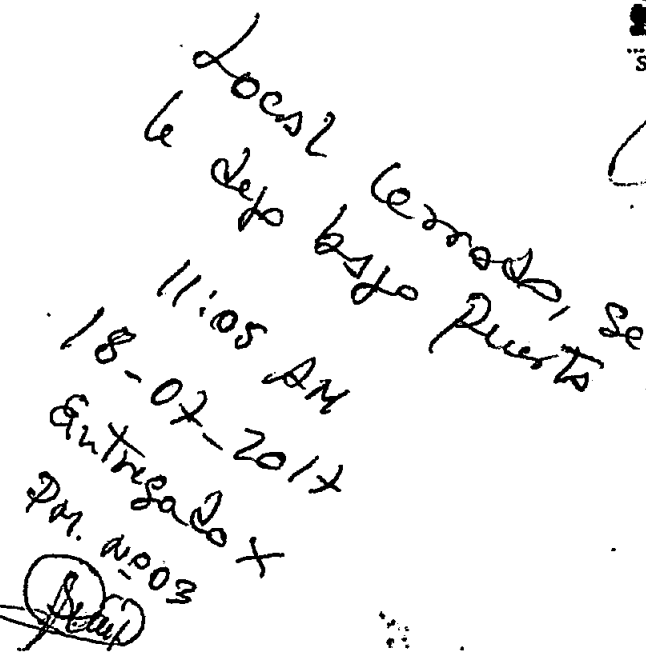 Local Cerrado, se
le dejo bajo puerta
11:05 AM
18-07-2017
Entregado x